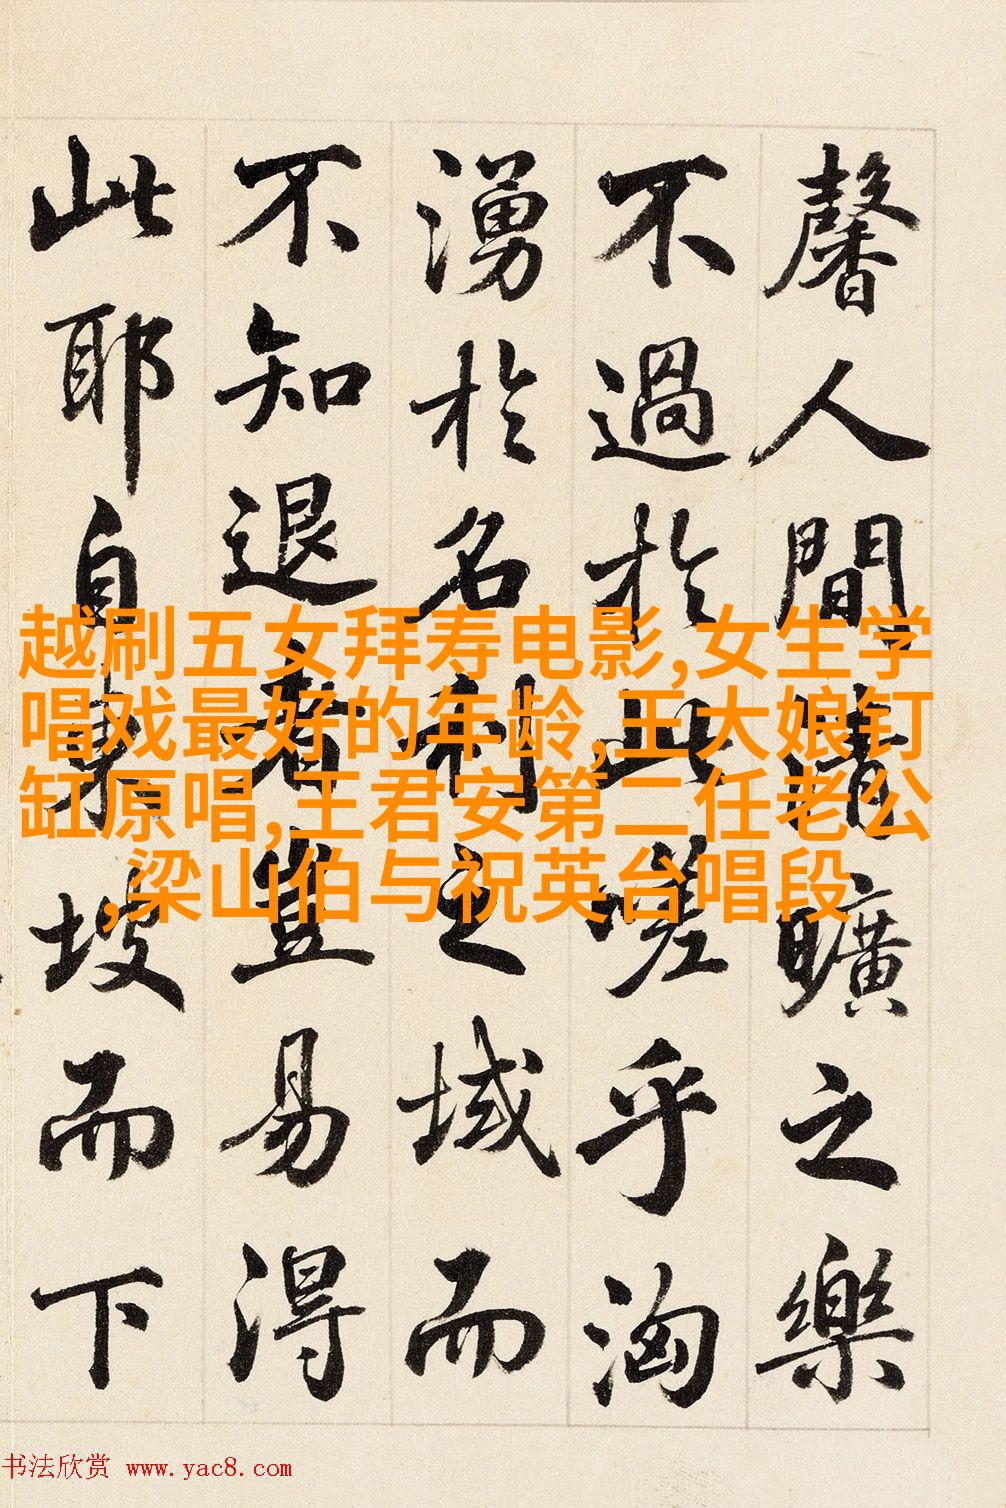 馨人間清曠之樂
不過於此嗟乎洶
湧於名利之域而
不知退者豈易得
此耶自東坡而下
越刷五女拜寿电影,女生学
唱戏最好的年龄,王大娘钉
缸原唱,王君安第二任老公
,梁山伯与祝英台唱段
书法欣赏 www.yac8.com